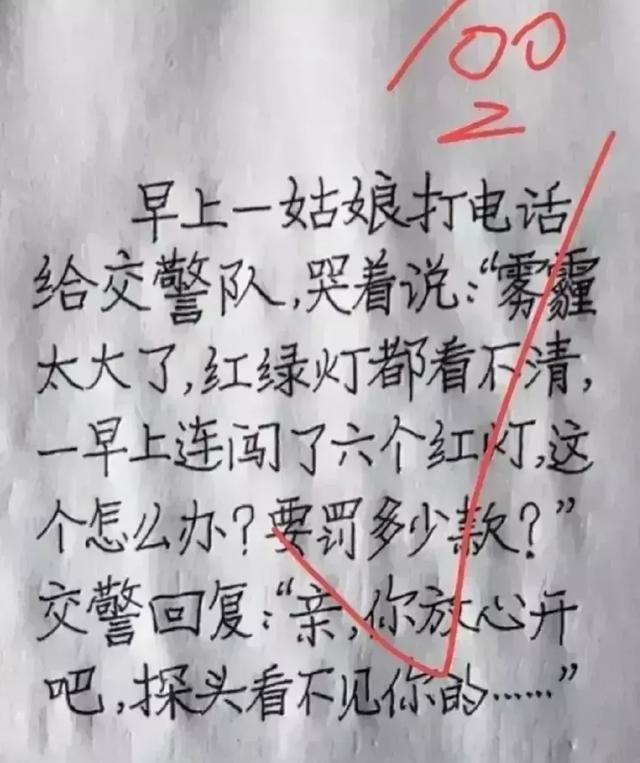 100
早上一姑娘打电话
给交警队,哭着说:“雾霾
太大了,红绿灯都看不清,
一早上连闯了六个红灯,这
个怎么办?要罚多少款?”
交警回复:“亲,你放心开
吧,探头看不见你的……”